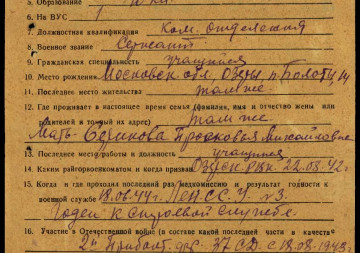 5. Образование
6. На ВУС 1
7. Должностная квалификация Ком. отделения
8. Военное звание Сержант
9. Гражданская специальность учащийся
10. Место рождения Московская обл, Озеры, п. Болоты, 14
11. Последнее место жительства там же
12. Где проживает в настоящее время семья (фамилия, имя и отчество жены или
родителей и точный их адрес) там же
Мать - Прасковья Михайловна
13. Последнее место работы и должность учащийся
14. Каким райгорвоенкоматом и когда призван Озерск. РВК. 22.08.42г.
15. Когда и где проходил последний раз медкомиссию и результат годности к
военной службе 18.06.44г. № 3.
Годен к строевой службе.
16. Участие в Отечественной войне (в составе какой последней части в качестве
2й Прибалт. фр. 37 СД с 18.08.1943г.